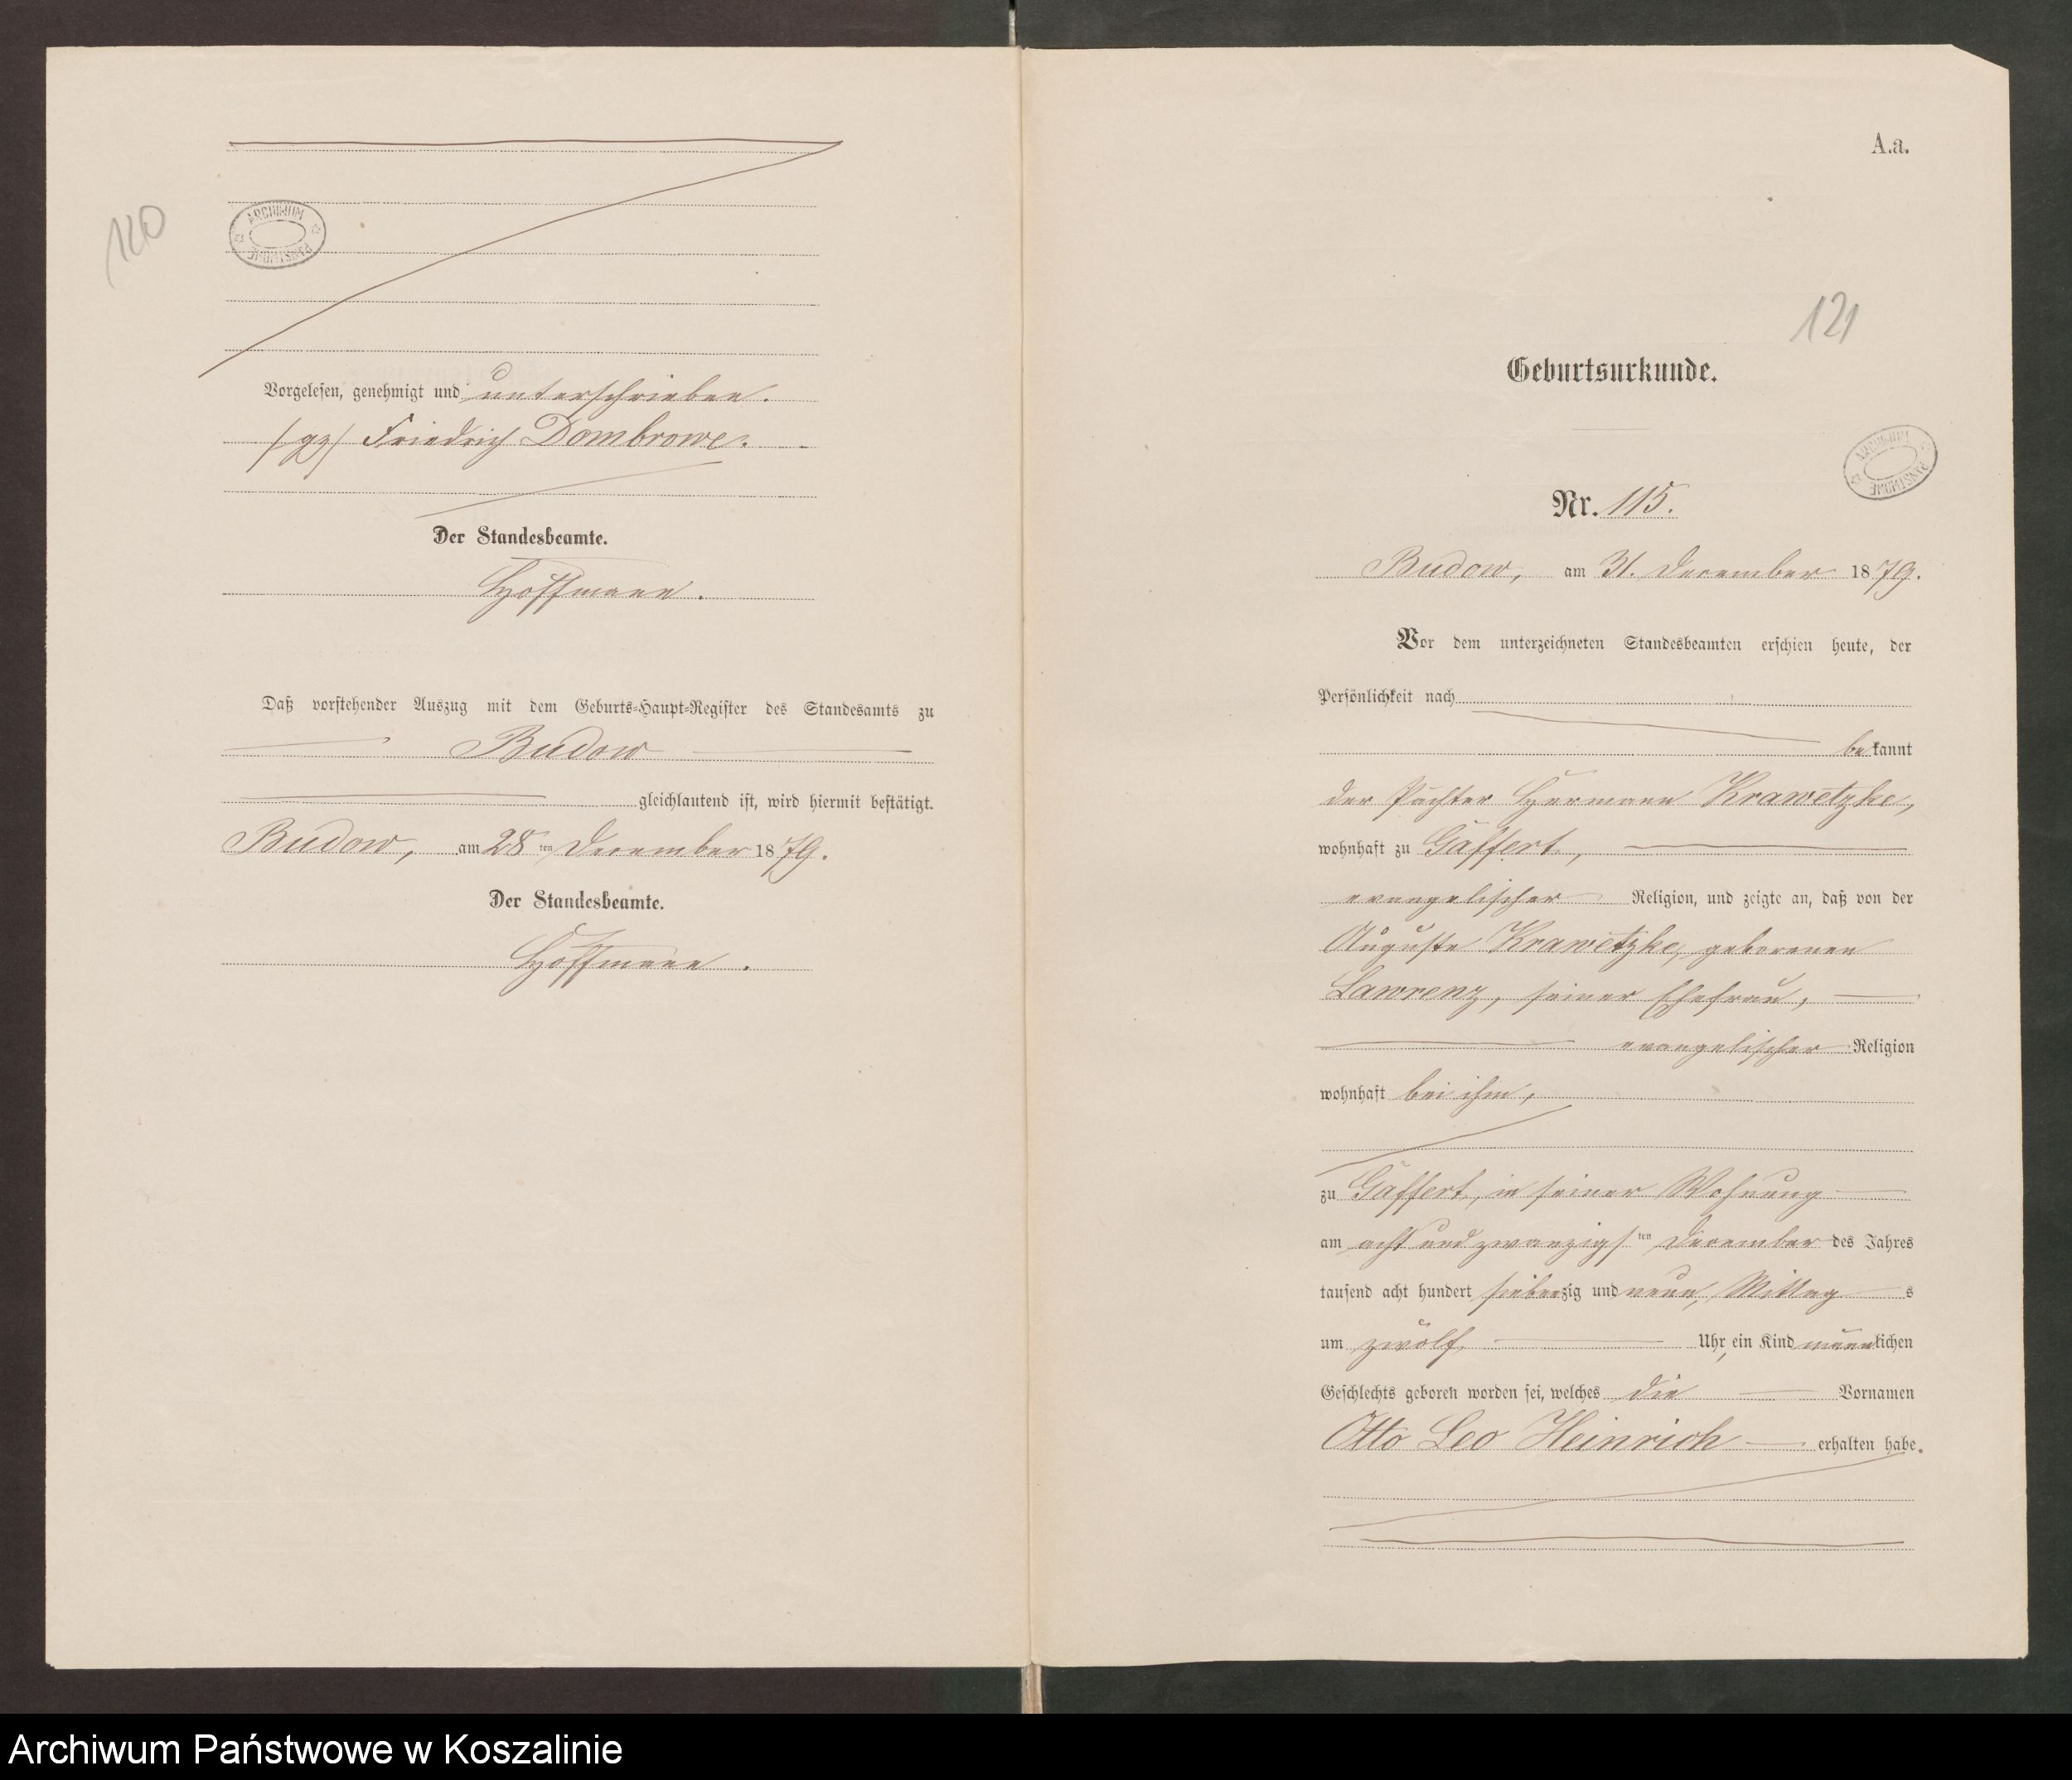 120
ARCHIWUM PAŃSTWOWE
Vorgelesen, genehmigt und unterschrieben.
/gz/ Friedrich Dombrowe.
Der Standesbeamte.
Hoffmann.
Daß vorstehender Auszug mit dem Geburts-Haupt-Register des Standesamts zu
Budow
gleichlautend ist, wird hiermit bestätigt.
Budow, am 28 ten December 1879.
Der Standesbeamte.
Hoffmann.
A.a.
121
Geburtsurkunde.
ARCHIWUM PAŃSTWOWE
Nr. 115.
Budow, am 31. December 1879.
Vor dem unterzeichneten Standesbeamten erschien heute, der
Persönlichkeit nach
bekannt
der Pächter Hermann Krawetzke,
wohnhaft zu Gaffert,
evangelischer Religion, und zeigte an, daß von der
Auguste Krawetzke, geborenen
Lawrenz, seiner Ehefrau,
evangelischer Religion
wohnhaft bei ihm,
zu Gaffert, in seiner Wohnung
am acht und zwanzigs ten December des Jahres
tausend acht hundert siebenzig und neun, Mittag s
um zwölf Uhr, ein Kind männlichen
Geschlechts geboren worden sei, welches die Vornamen
Otto Leo Heinrich erhalten habe.
Archiwum Państwowe w Koszalinie